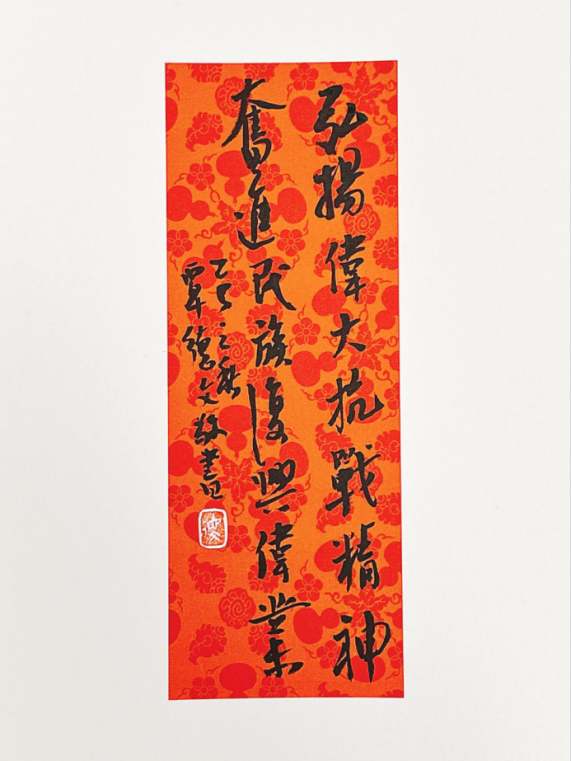 弘揚偉大抗戰精神
奮進民族復興偉業
乙巳之秋
覃德文敬書